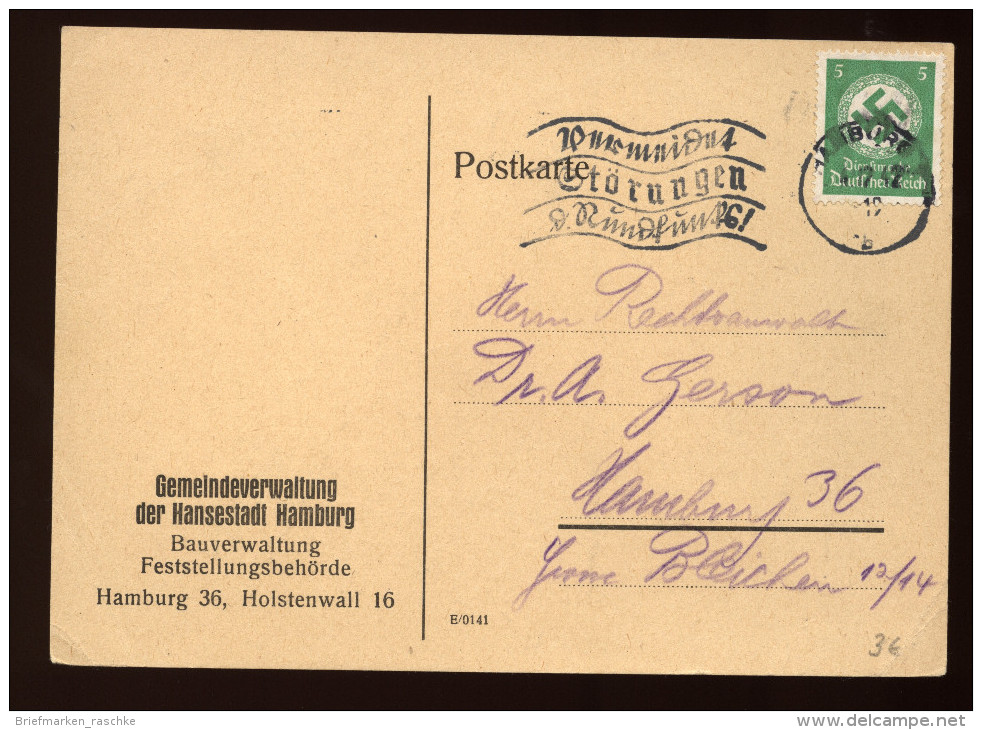 5 5
Dienstmarke
Deutsches Reich
HAMBURG
Vermeidet
Störungen
d. Rundfunks!
Postkarte
Herrn Rechtsanwalt
Dr. A. Gerson
Hamburg 36
Bleichen 12/14
Gemeindeverwaltung
der Hansestadt Hamburg
Bauverwaltung
Feststellungsbehörde
Hamburg 36, Holstenwall 16
E/0141
36
Briefmarken_raschke
www.delcampe.net